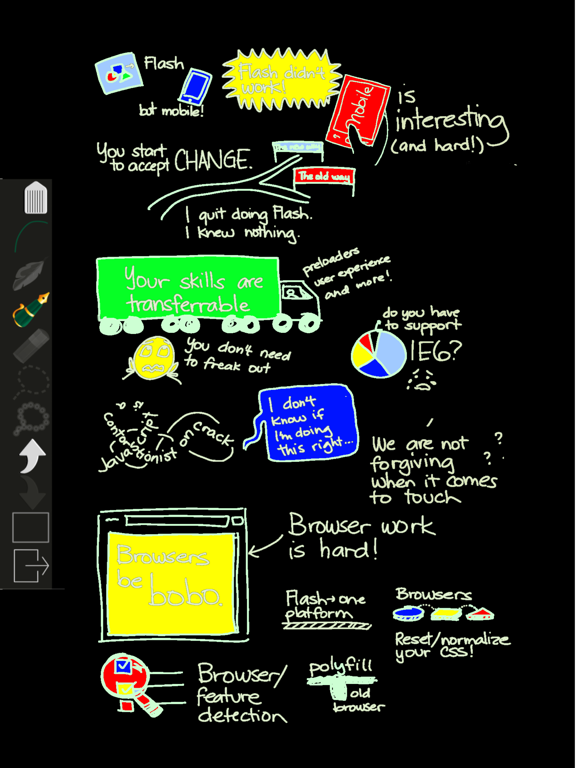 Flash
but mobile!
Flash didn't
work!
Mobile
is
interesting
(and hard!)
You start
to accept CHANGE.
The new way
The old way
I quit doing Flash.
I knew nothing.
Your skills are
transferrable
preloaders
user experience
and more!
You don't need
to freak out
do you have
to support
IE6?
JavaScript
is a
contortionist
on crack
I don't
know if
I'm doing
this right...
We are not
forgiving
when it comes
to touch
? ? ?
Browsers
be
bobo.
Browser work
is hard!
Flash→one
platform
Browsers
Reset/normalize
your CSS!
Browser/
feature
detection
polyfill
old
browser